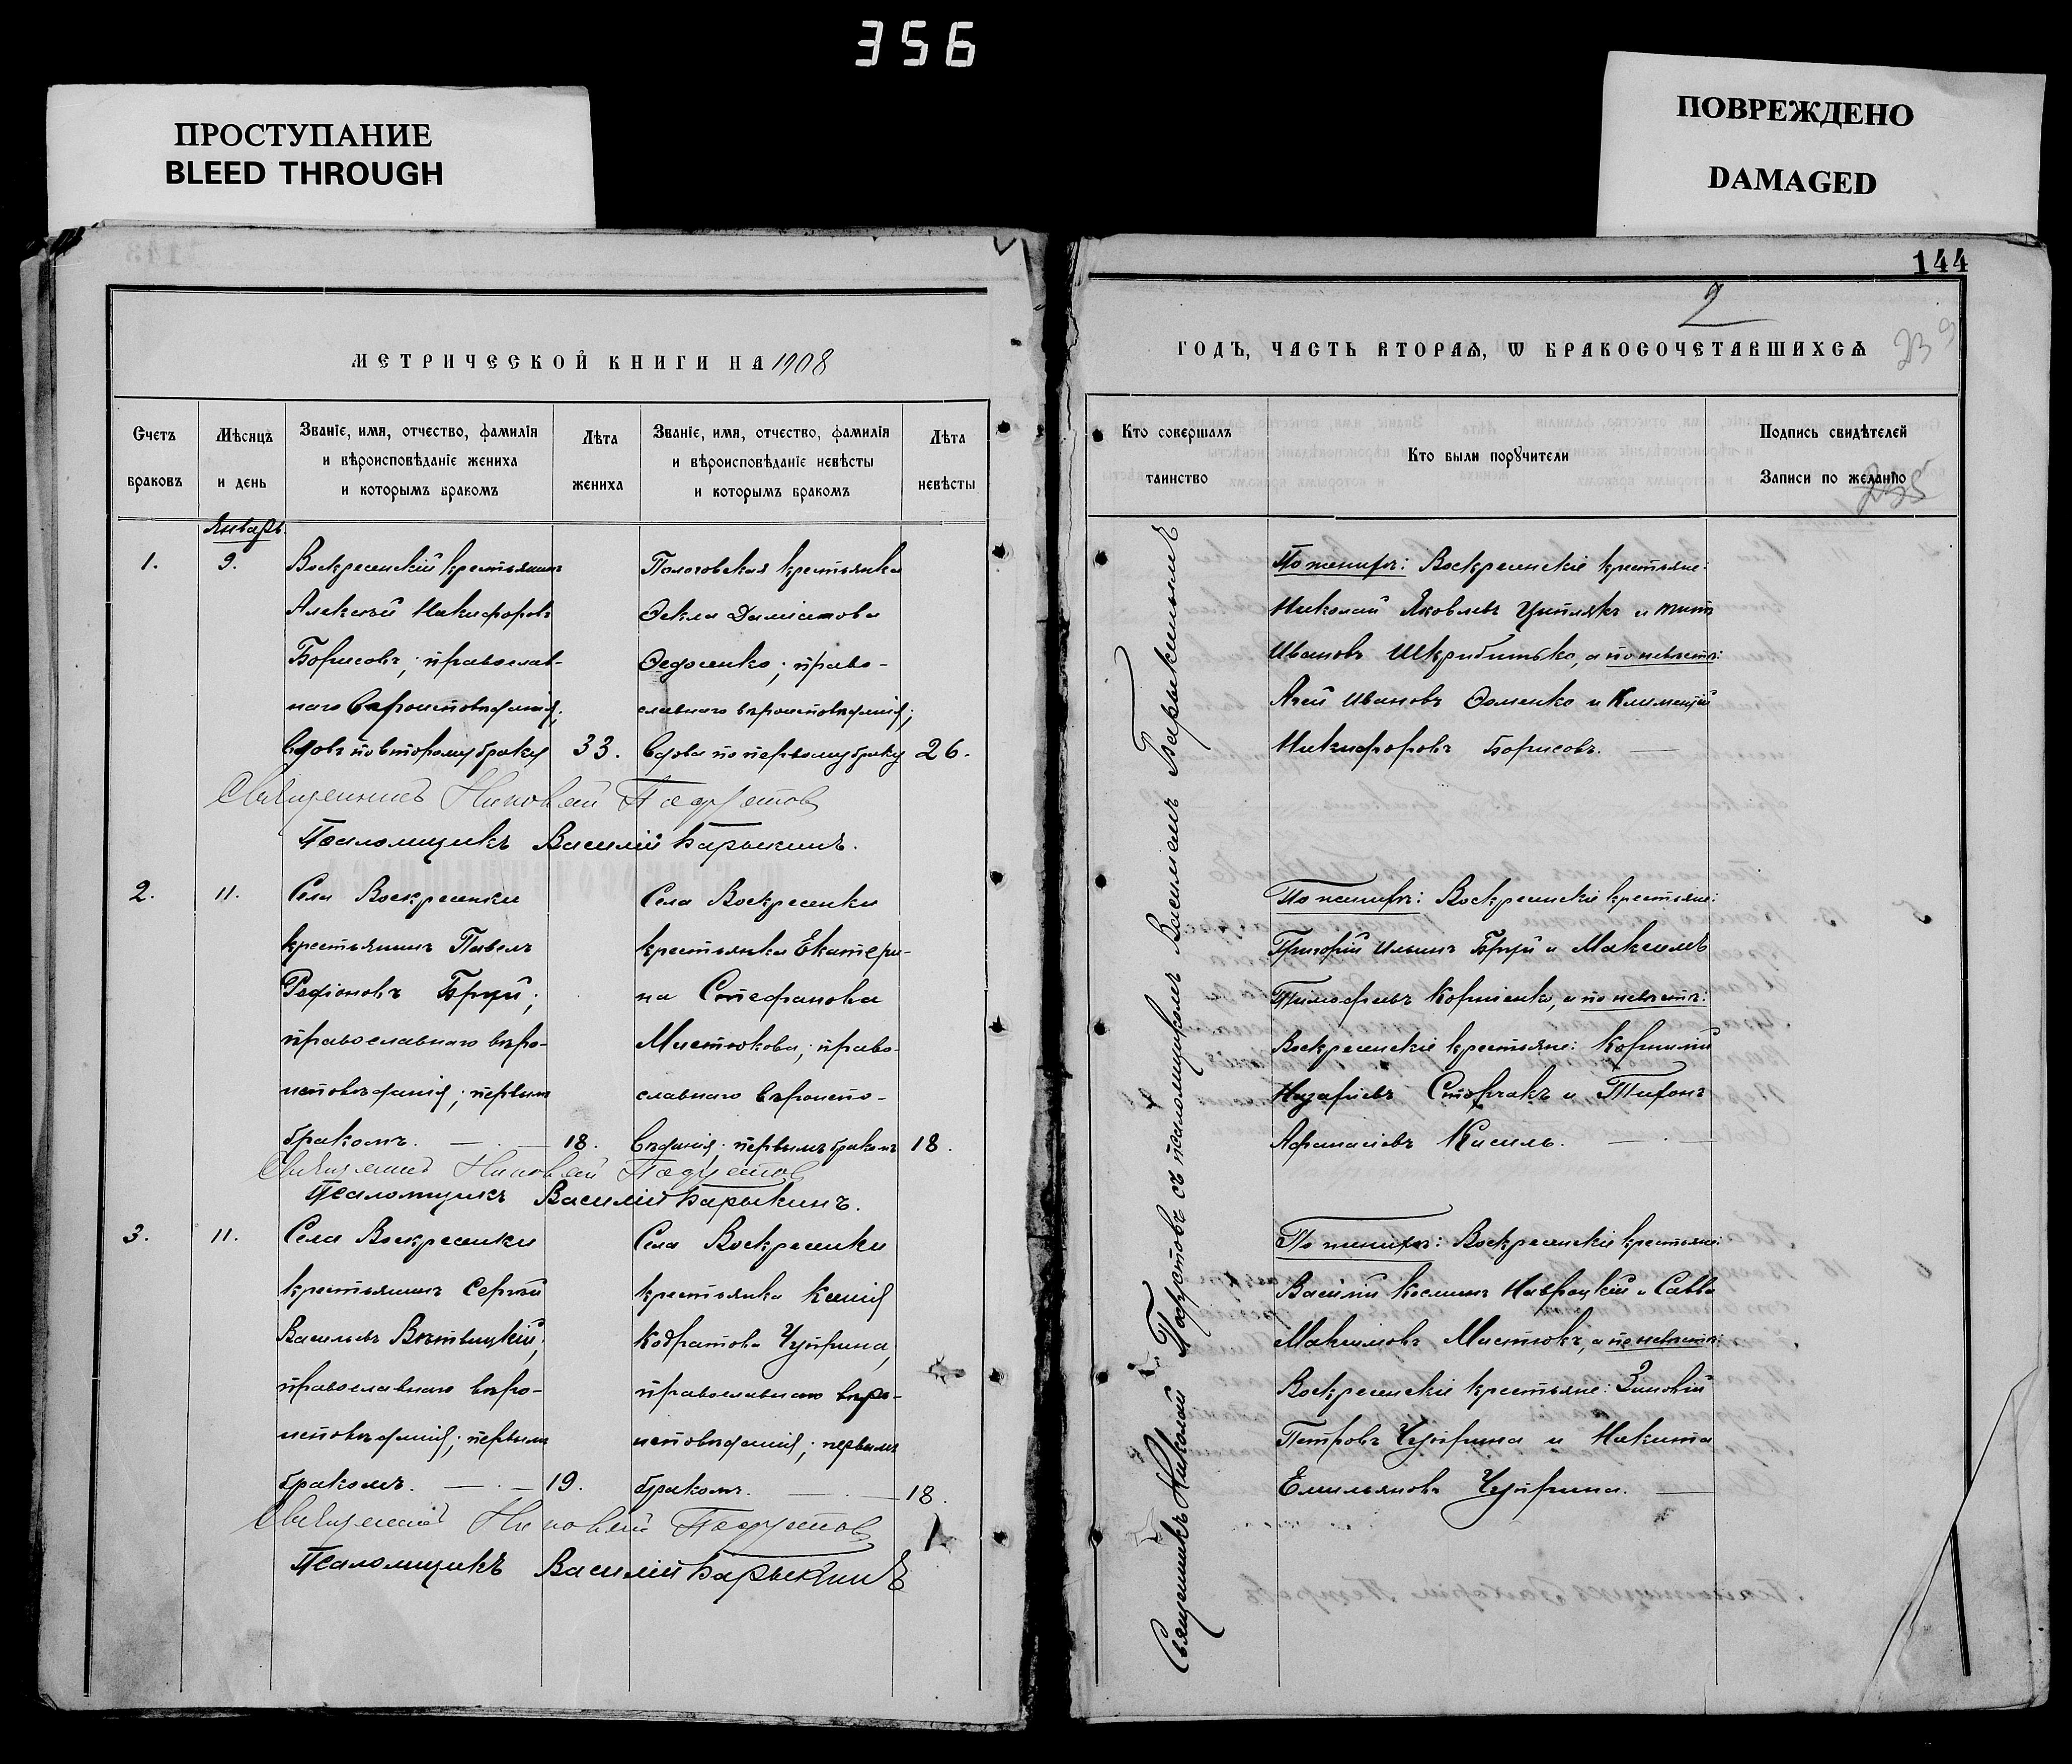 356
ПРОСТУПАНИЕ
BLEED THROUGH
ПОВРЕЖДЕНО
DAMAGED
МЕТРИЧЕСКОЙ КНИГИ НА 1908
Счетъ браковъ
Мѣсяцъ и день
Званіе, имя, отчество, фамилія
и вѣроисповѣданіе жениха
и которымъ бракомъ
Лѣта жениха
Званіе, имя, отчество, фамилія
и вѣроисповѣданіе невѣсты
и которымъ бракомъ
Лѣта невѣсты
Январь.
1. 9.
Воскресенскій крестьянинъ
Алексѣй Никифоровъ
Борисовъ; православ-
наго вѣроисповѣданія;
вдовъ по второму браку 33.
Пологовская крестьянка
Ѳекла
Ѳедосенко; право-
славнаго вѣроисповѣданія;
вдова по первому браку 26.
Священникъ Николай
Псаломщикъ Василій Барыкинъ.
2. 11.
Села Воскресенки
крестьянинъ Павелъ
Родіоновъ
православнаго вѣро-
исповѣданія; первымъ
бракомъ. 18.
Села Воскресенки
крестьянка Екатери-
на Стефанова
Мистюкова; право-
славнаго вѣроиспо-
вѣданія; первымъ бракомъ 18.
Священникъ Николай
Псаломщикъ Василій Барыкинъ.
3. 11.
Села Воскресенки
крестьянинъ Сергѣй
Васильевъ
православнаго вѣро-
исповѣданія; первымъ
бракомъ. 19.
Села Воскресенки
крестьянка Ксенія
Кодратова Чуприна;
православнаго вѣро-
исповѣданія; первымъ
бракомъ. 18.
Священникъ Николай
Псаломщикъ Василій Барыкинъ
144
2
ГОДЪ, ЧАСТЬ ВТОРАѦ, Ѡ БРАКОСОЧЕТАВШИХСѦ
Кто совершалъ
таинство
Кто были порꙋчители
Подпись свидѣтелей
Записи по желанію
Священникъ Николай съ псаломщикомъ Василіемъ Барыкинымъ
По женихѣ: Воскресенскіе крестьяне:
Николай Яковлевъ и Титъ
Ивановъ а по невѣстѣ:
Ивановъ Ѳоменко и Климентій
Никифоровъ Борисовъ.
По женихѣ: Воскресенскіе крестьяне:
Григорій Ильинъ и Максимъ
Тимофеевъ Корніенко, а по невѣстѣ:
Воскресенскіе крестьяне: Корнилій
Назаріевъ Сторчакъ и Тихонъ
Афанасіевъ Кисиль.
По женихѣ: Воскресенскіе крестьяне:
Василій Косминъ Навроцкій и Савва
Максимовъ Мистюкъ, а по невѣстѣ:
Воскресенскіе крестьяне: Зиновій
Петровъ Чуприна и Никита
Емильяновъ Чуприна.